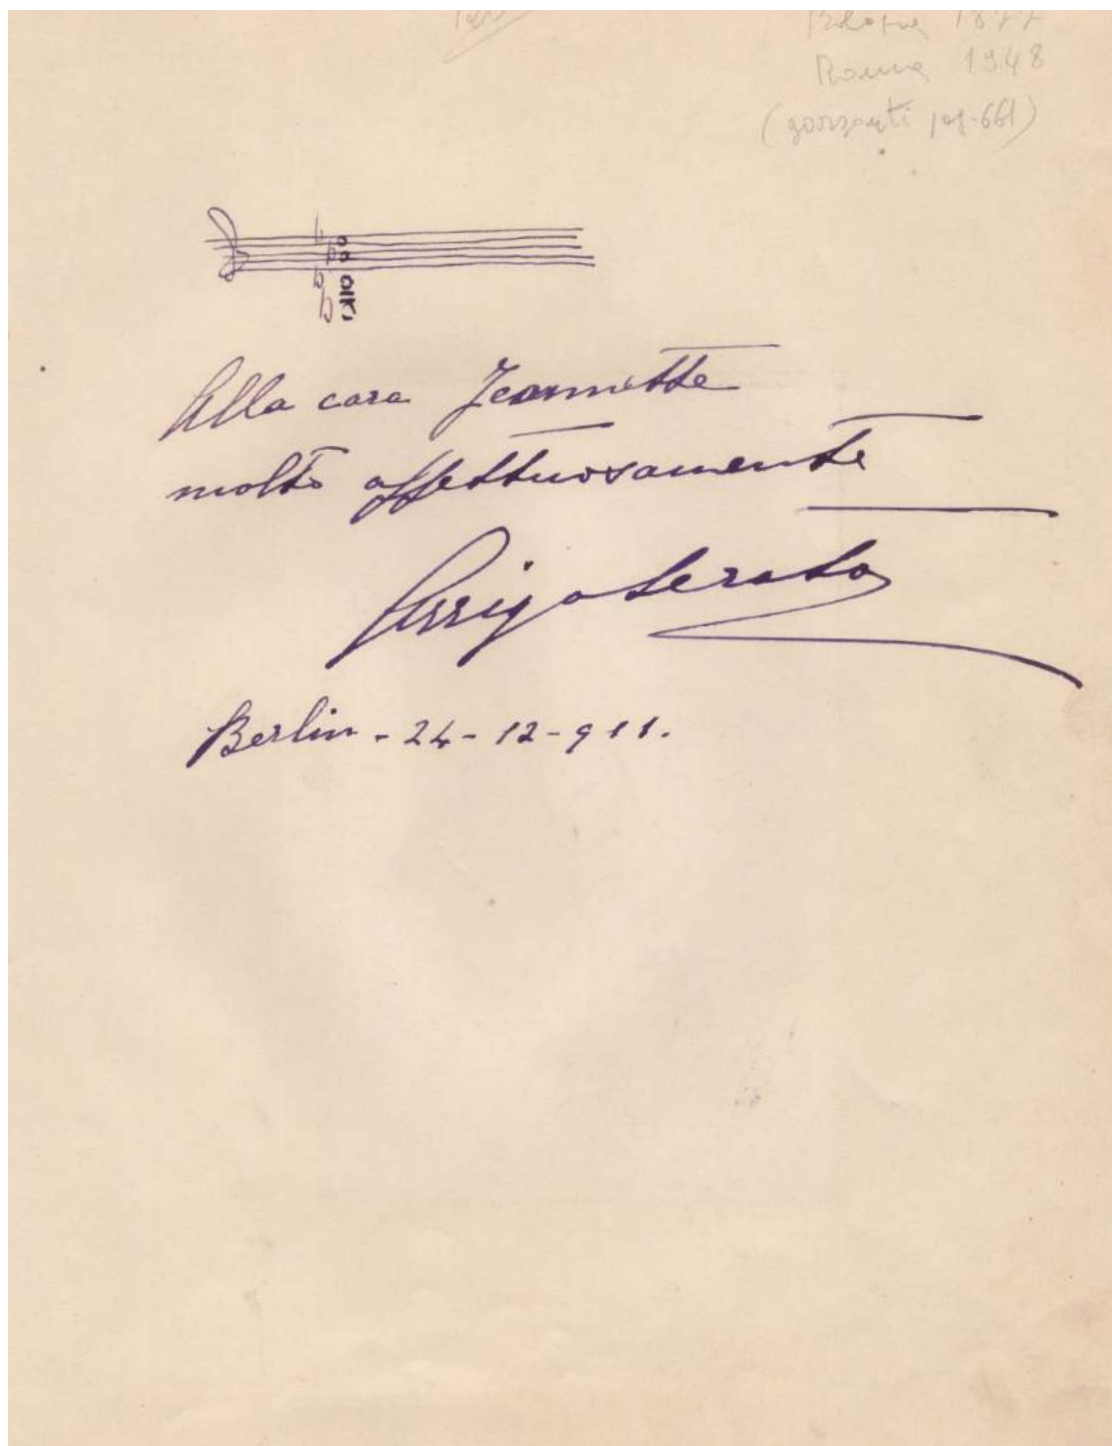 Bologna 1877
Roma 1948
(garzanti pag. 661)
Alla cara Jeannette
molto affettuosamente
Arrigo Serato
Berlin - 24 - 12 - 911.